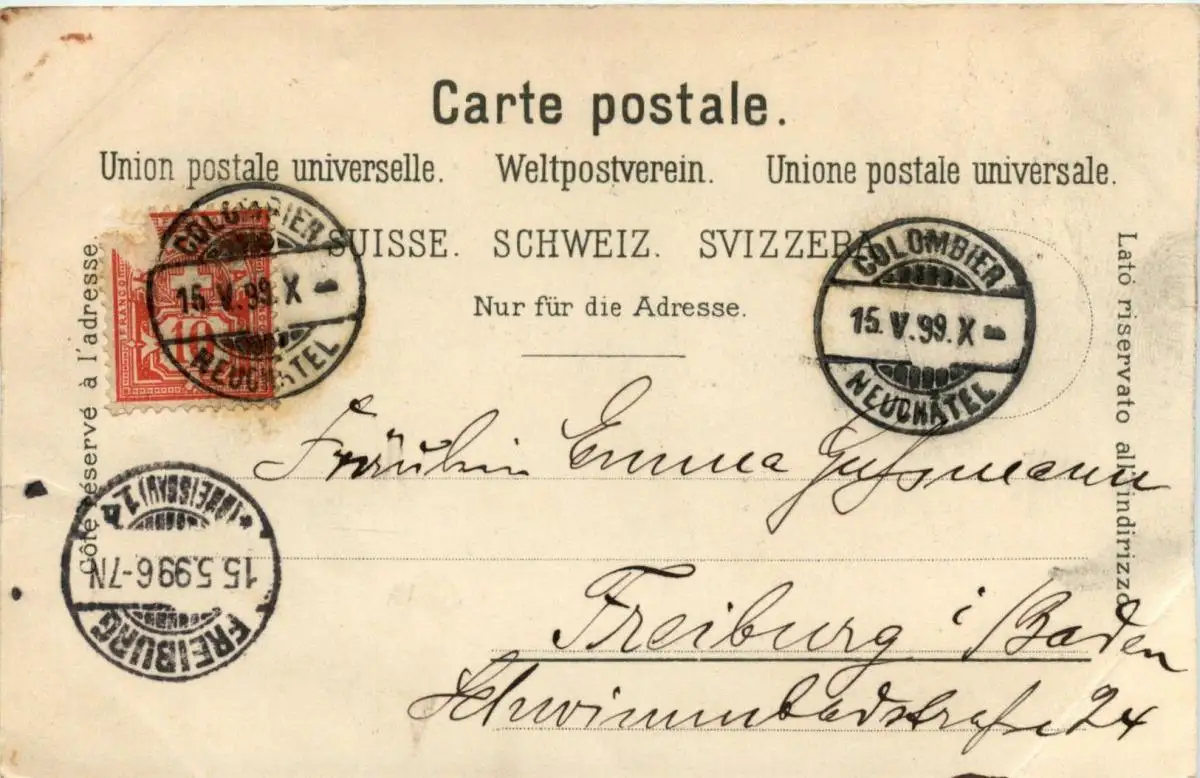 Carte postale.
Union postale universelle. Weltpostverein. Unione postale universale.
SUISSE. SCHWEIZ. SVIZZERA
Nur für die Adresse.
Côté réservé à l'adresse.
Lato riservato all'indirizzo
FRANCO
10
COLOMBIER
15.V.99.X-
NEUCHÂTEL
COLOMBIER
15.V.99.X-
NEUCHÂTEL
Fräulein Emma Gußmann
Freiburg i/Baden
Schwimmbadstraße 24
FREIBURG
15.5.99.6-7N
(BREISGAU) 1